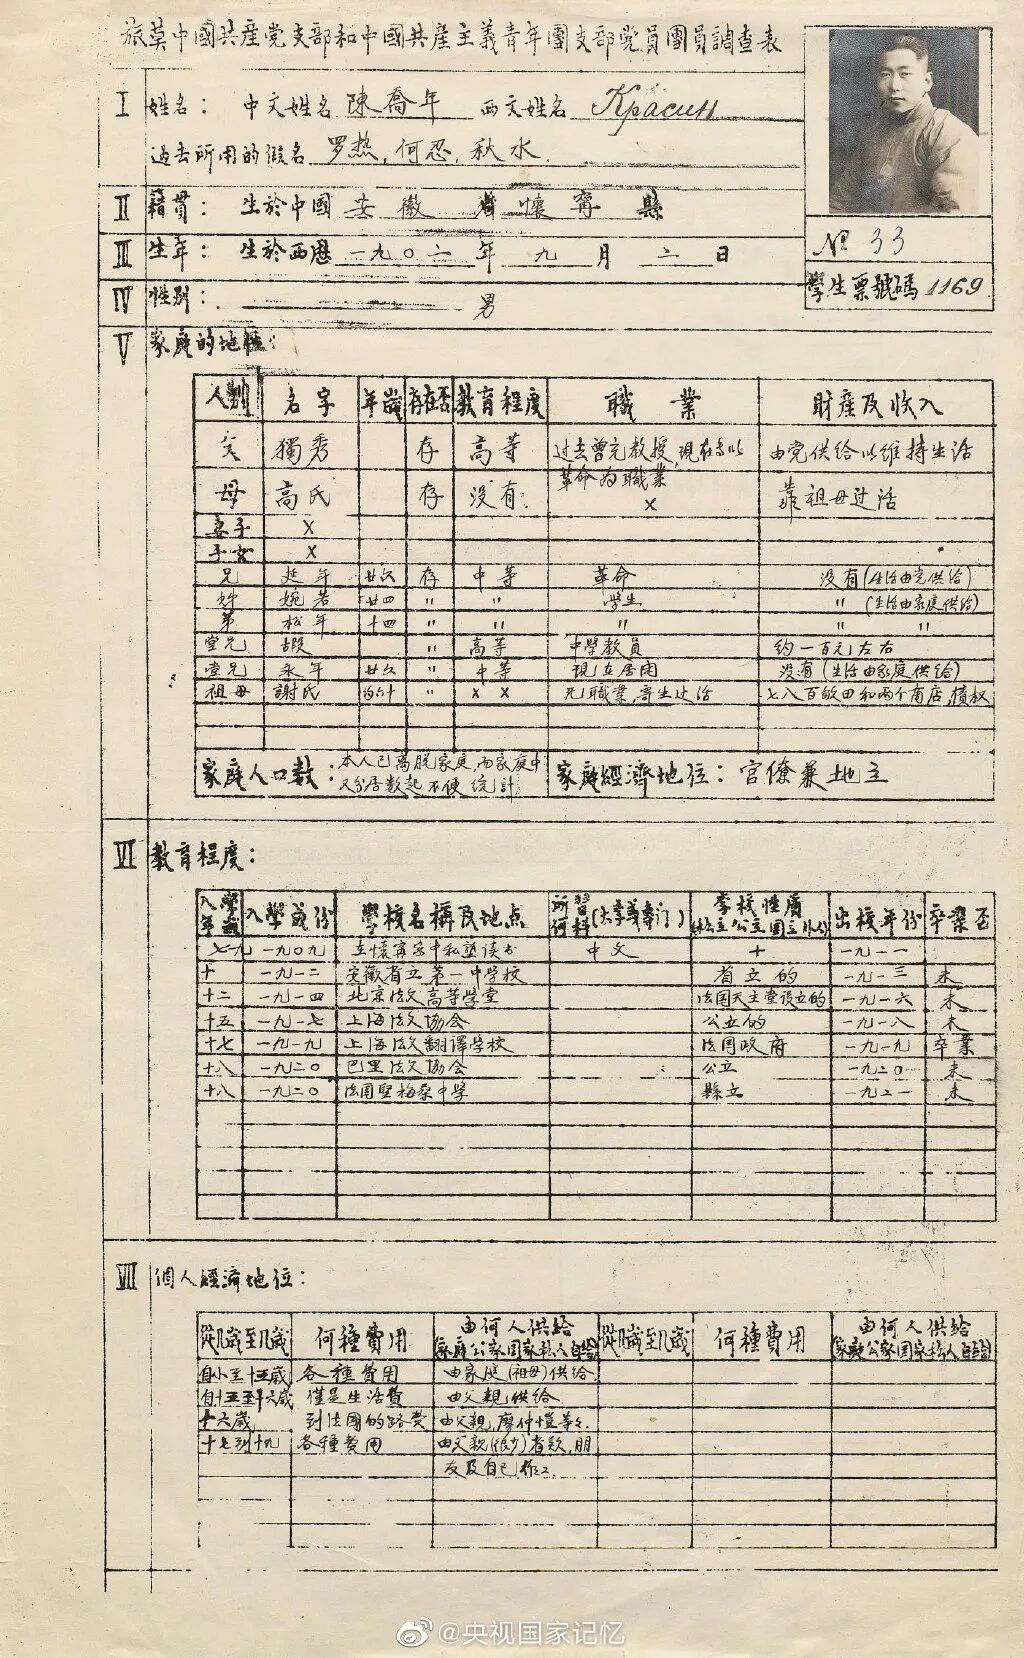 旅莫中國共產党支部和中國共產主義青年團支部党員團員調查表
I 姓名： 中文姓名 陳喬年 西文姓名 Красин
過去所用的假名 罗热，何忍，秋水
II 籍貫： 生於中國 安徽 省 懷寧 縣
III 生年： 生於西曆 一九〇二 年 九 月 二 日
№ 33
IV 性别： 男
學生票號碼 1169
V 家庭的地位：
人别 名字 年歲 存在否 教育程度 職業 財產及收入
父 獨秀 存 高等 过去曾充教授，現在
革命为職業 由党供给以維持生活
母 高氏 存 没有 × 靠祖母过活
妻子 ×
子女 ×
兄 延年 廿六 存 中等 革命 没有(生活由党供给)
姊 婉若 廿四 〃 〃 学生 〃 (生活由家庭供给)
弟 松年 十四 〃 〃 〃 〃 〃
堂兄 遐 〃 高等 中學教員 约一百元左右
堂兄 永年 廿六 〃 中等 現在居闲 没有(生活由家庭供给)
祖母 謝氏 〃 × × 无職業，寄生过活 七八百畝田和两个商店，債权
家庭人口數： 本人已离脱家庭，而家庭中
又分居数起不便统計 家庭經濟地位：官僚兼地主
VI 教育程度：
入學年歲 入學歲份 學校名稱及地点 所習何科(大學或專门) 學校性質(私立公立國立外) 出校年份 卒業否
七 一九〇九 在懷寧家中私塾读书 中文 + 一九一一
十 一九一二 安徽省立第一中学校 省立的 一九一三 未
十二 一九一四 北京法文高等学堂 法国天主堂设立的 一九一六 未
十五 一九一七 上海法文協会 公立的 一九一八 未
十七 一九一九 上海法文翻譯学校 法国政府 一九一九 卒業
十八 一九二〇 巴里法文協会 公立 一九二〇 未
十八 一九二〇 法国聖梅桑中学 縣立 一九二一 未
VII 個人經濟地位：
從几歲至几歲 何種費用 由何人供給(家庭公家国家私人自给) 從几歲至几歲 何種費用 由何人供給(家庭公家国家私人自给)
自小至十五歲 各種費用 由家庭(祖母)供给
自十五至十六歲 僅是生活費 由父親供给
十六歲 到法國的路費 由父親，廖仲愷等
十七到十九 各種費用 由父親(很少)者数，朋
友及自己作工
@央视国家记忆